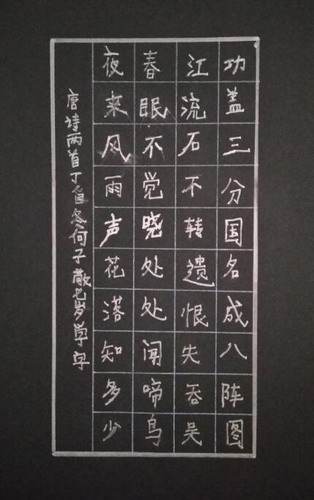 功盖三分国名成八阵图
江流石不转遗恨失吞吴
春眠不觉晓处处闻啼鸟
夜来风雨声花落知多少
唐诗两首丁酉冬何子七岁学字